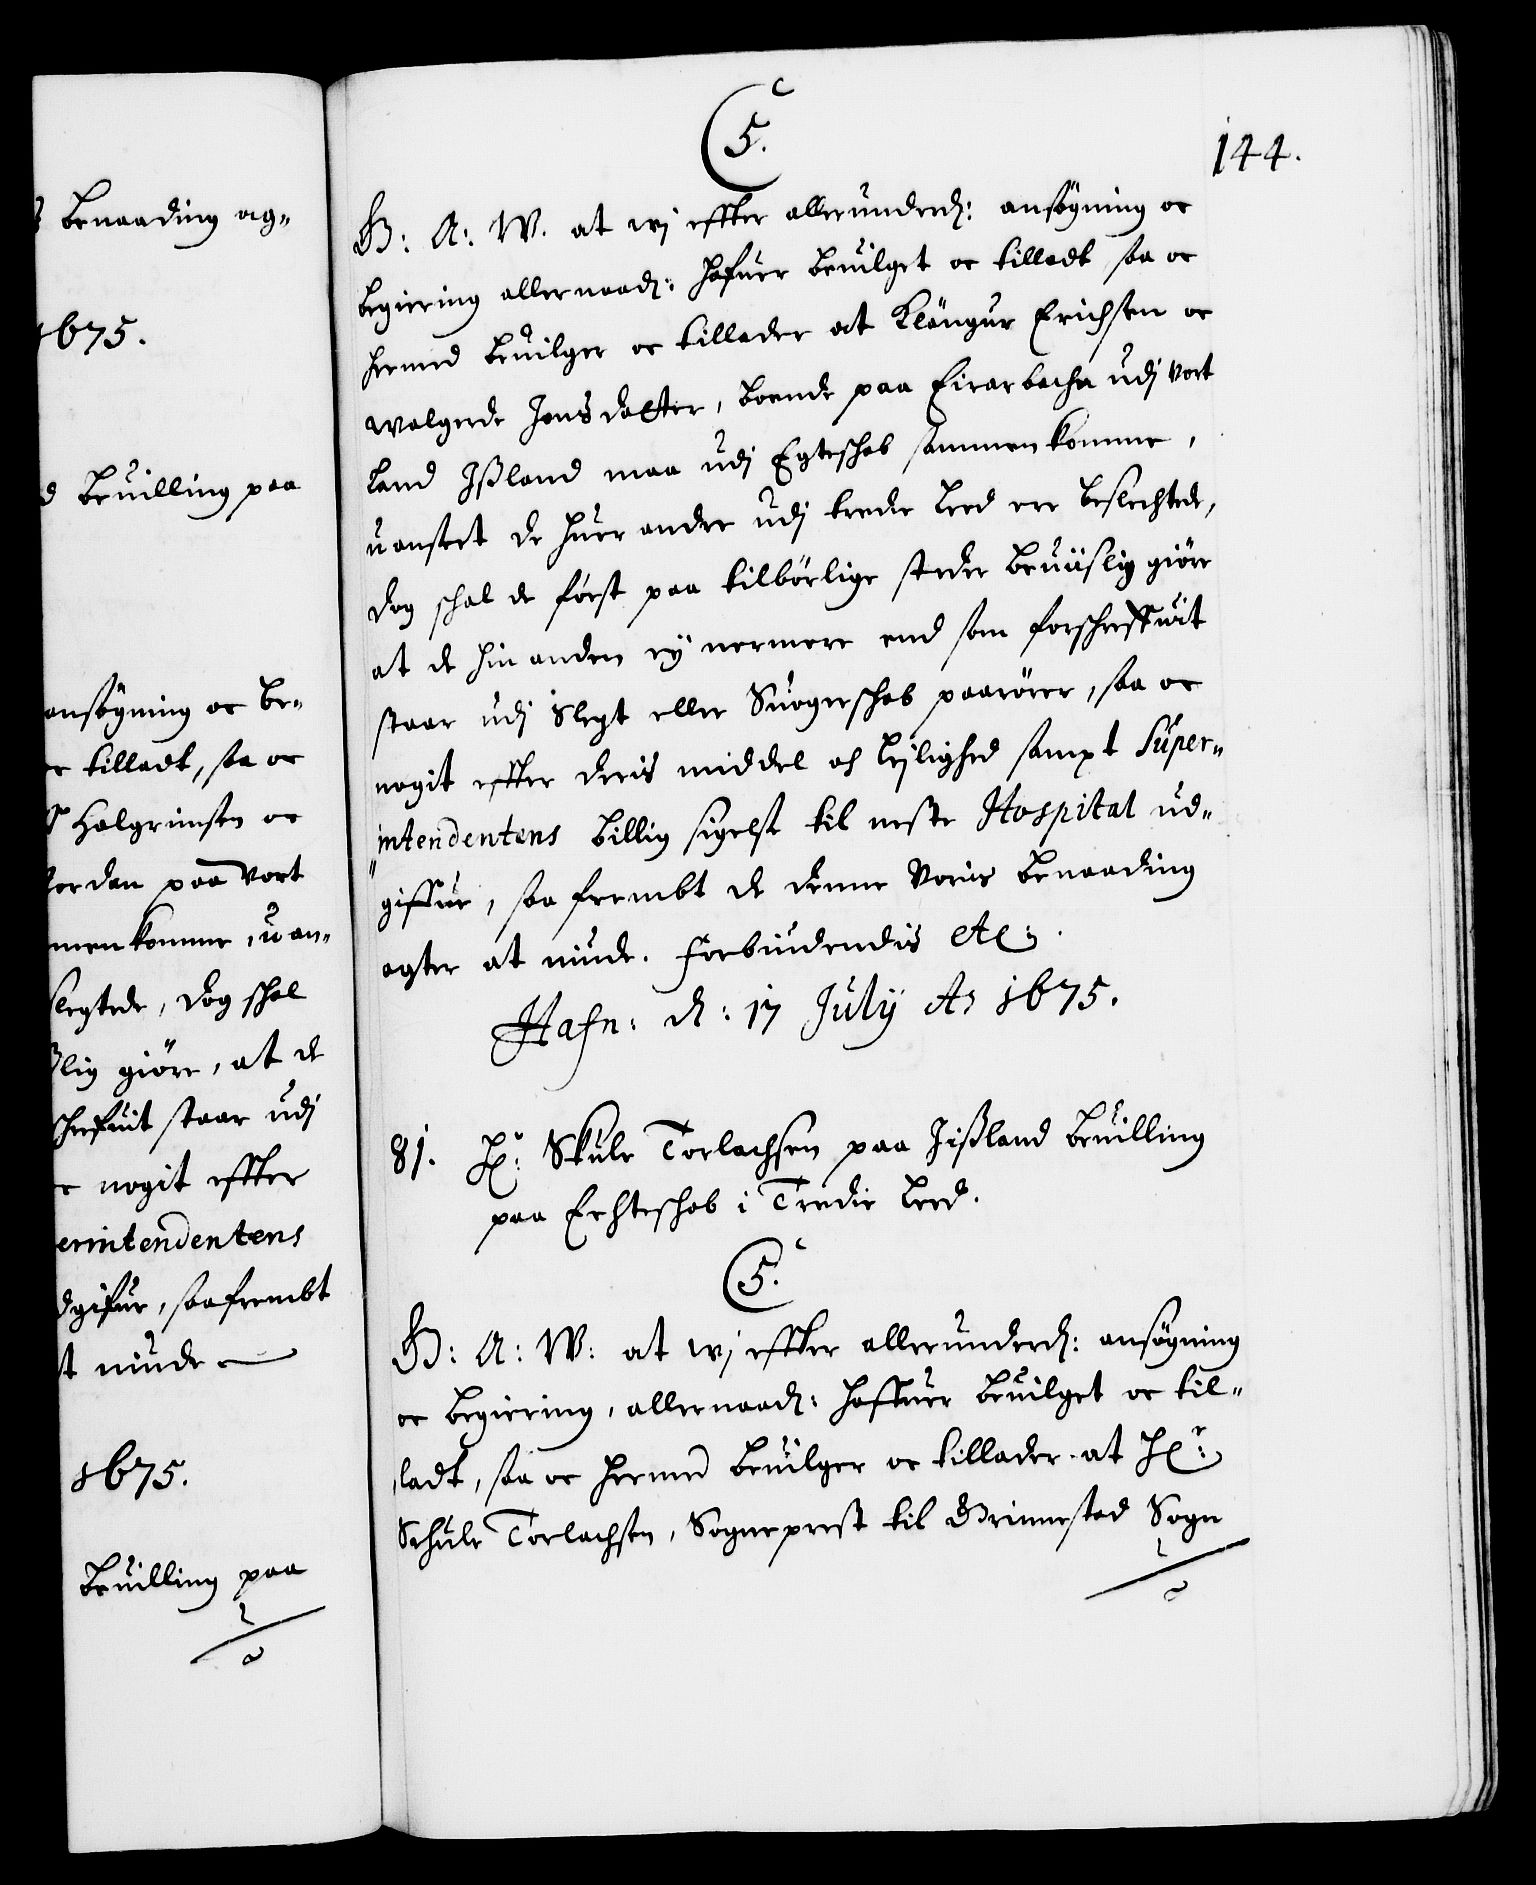 Benaading ag-
1675.
Beuilling paa
ansøgning oc be-
tilladt, saa oc
Halgrimsen oc
Jordan paa Vort
menkomme, uan-
slegtede, dog schal
lig giöre, at de
schrefuit staar udj
nogit effter
erintendentens
dgifue, saafrembt
niude
1675.
Beuilling paa
144.
C 5.
G: A: W. at wj effter allerunderd: ansøgning oc
begiering allernaad: hafuer beuilget oc tilladt saa oc
hermed beuilger oc tillader at Klängur Erichsen oc
Walgerde Jonsdatter, boende paa Eirarbache udj Vort
Land Jßland maa udj Egteschab sammenkomme,
uanseet de huer andre udj tredie Leed ere beslechtede,
dog schal de först paa tilbörlige steder beuiislig giöre
at de hin anden ej nermere end som forschreffuit
staar udj Slegt eller Suogerschab paarörer, saa oc
nogit effter deris middel oc lejlighed sampt Super-
intendentens billig sigelse til neste Hospital ud-
giffue, saa frembt de denne Voris benaading
agter at niude. Forbiudendis etc:
Hafn: d: 17 July Ao 1675.
81. Hr: Skule Torlachsen paa Jißland beuilling
paa Echteschab i Tredie Leed.
C 5.
G: A: W: at wj effter allerunderd: ansøgning
oc begiering, allernaad: haffuer beuilget oc til-
ladt, saa oc hermed beuilger oc tillader at Hr:
Schule Torlachsen, Sogneprest til Grinnestad Sogn